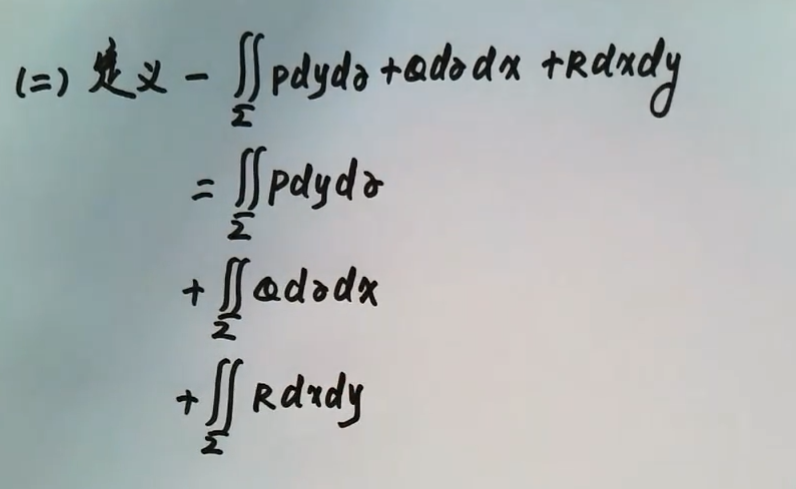 (二) 定义 - ∬_Σ Pdydz + Qdzdx + Rdxdy
= ∬_Σ Pdydz
+ ∬_Σ Qdzdx
+ ∬_Σ Rdxdy